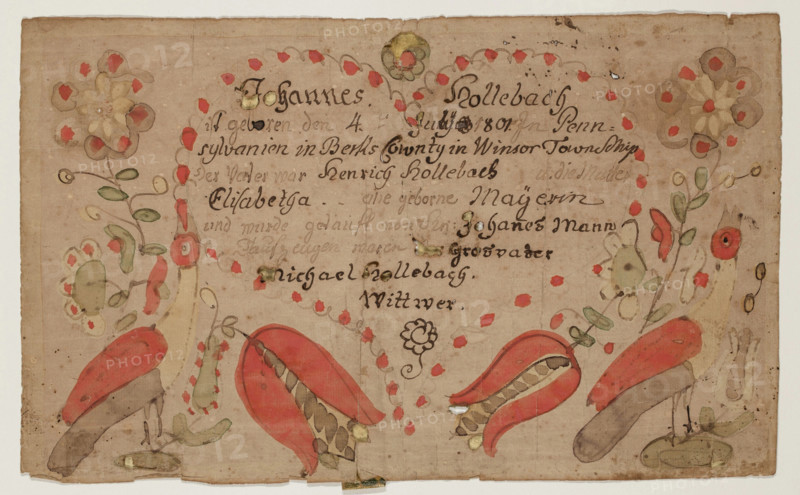 Johannes. Hollebach
ist geboren den 4. July 1801 in Penn=
sylvanien in Berks County in Winsor Townschip
Der Vater war Henrich Hollebach die Mutter
Elisabetha . . eine geborne Mayerin
und wurde getauft Johanes Mann
Taufzeugen waren Grosvader
Michael Hollebach.
Wittwer.
PHOTO12